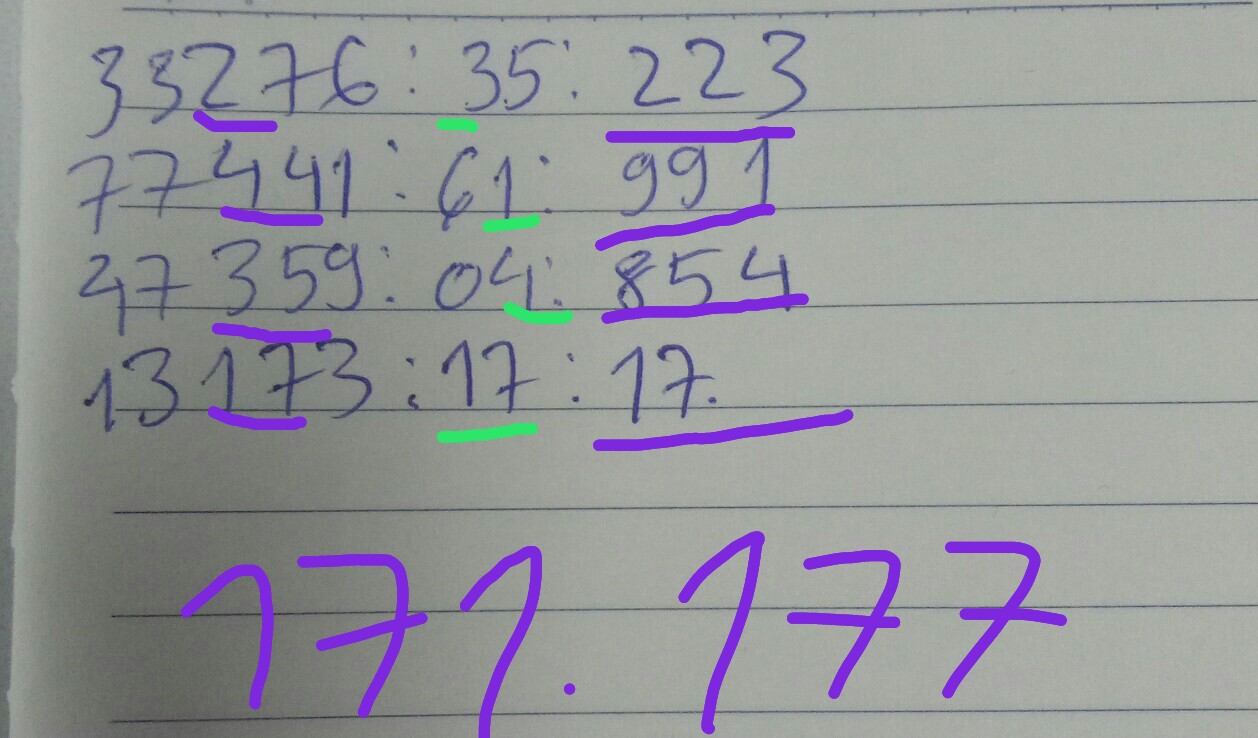 33276: 35: 223
77441: 61: 991
47359: 04: 854
13173: 17: 17.
171.177